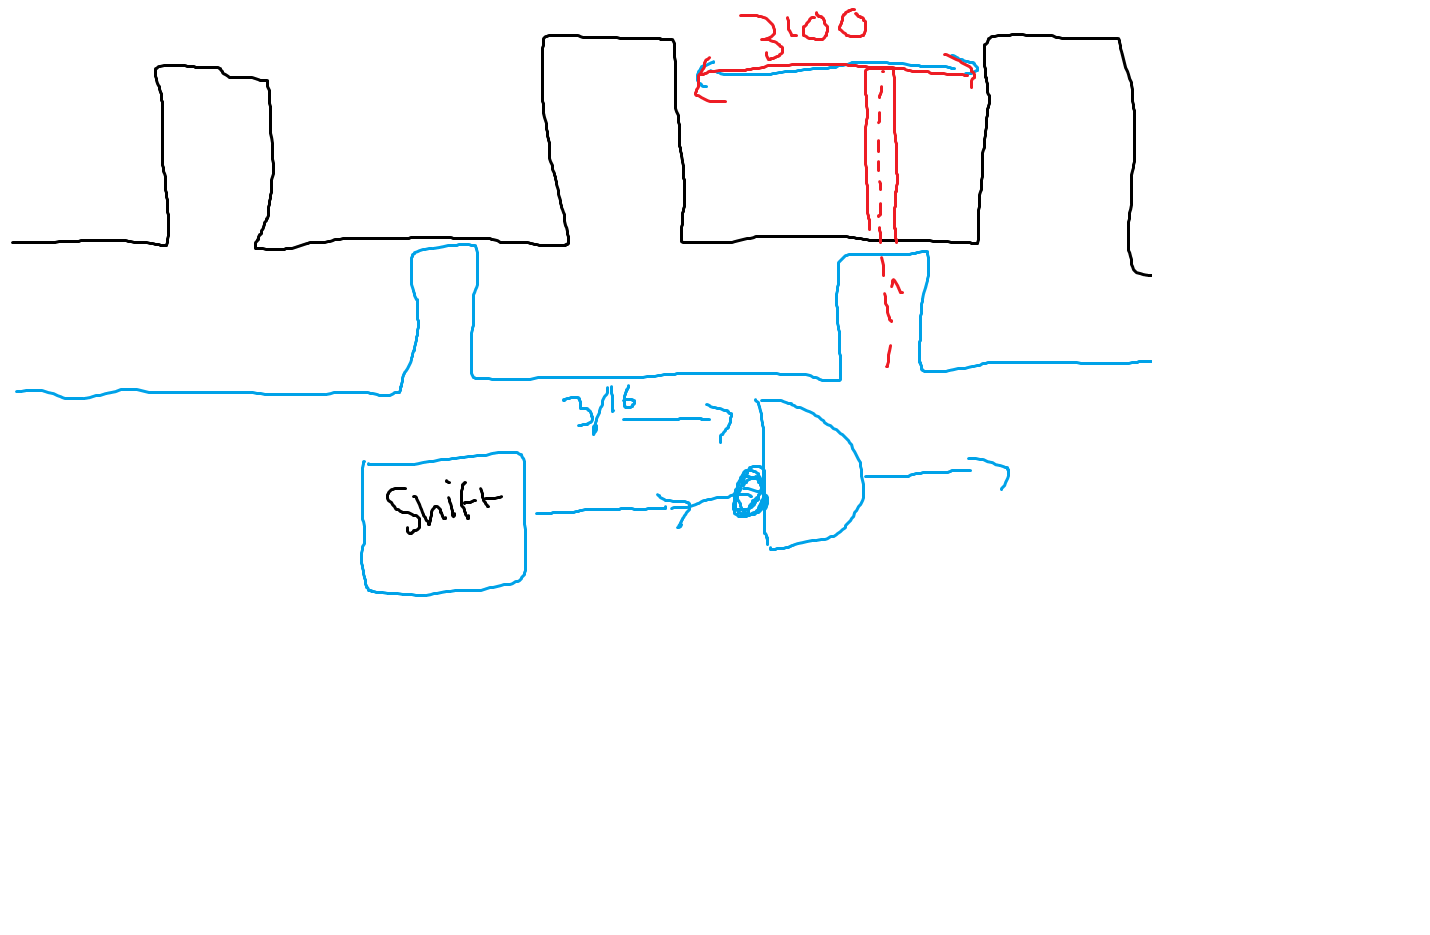 3100
3/16
Shift